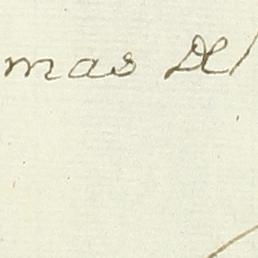 mas Del